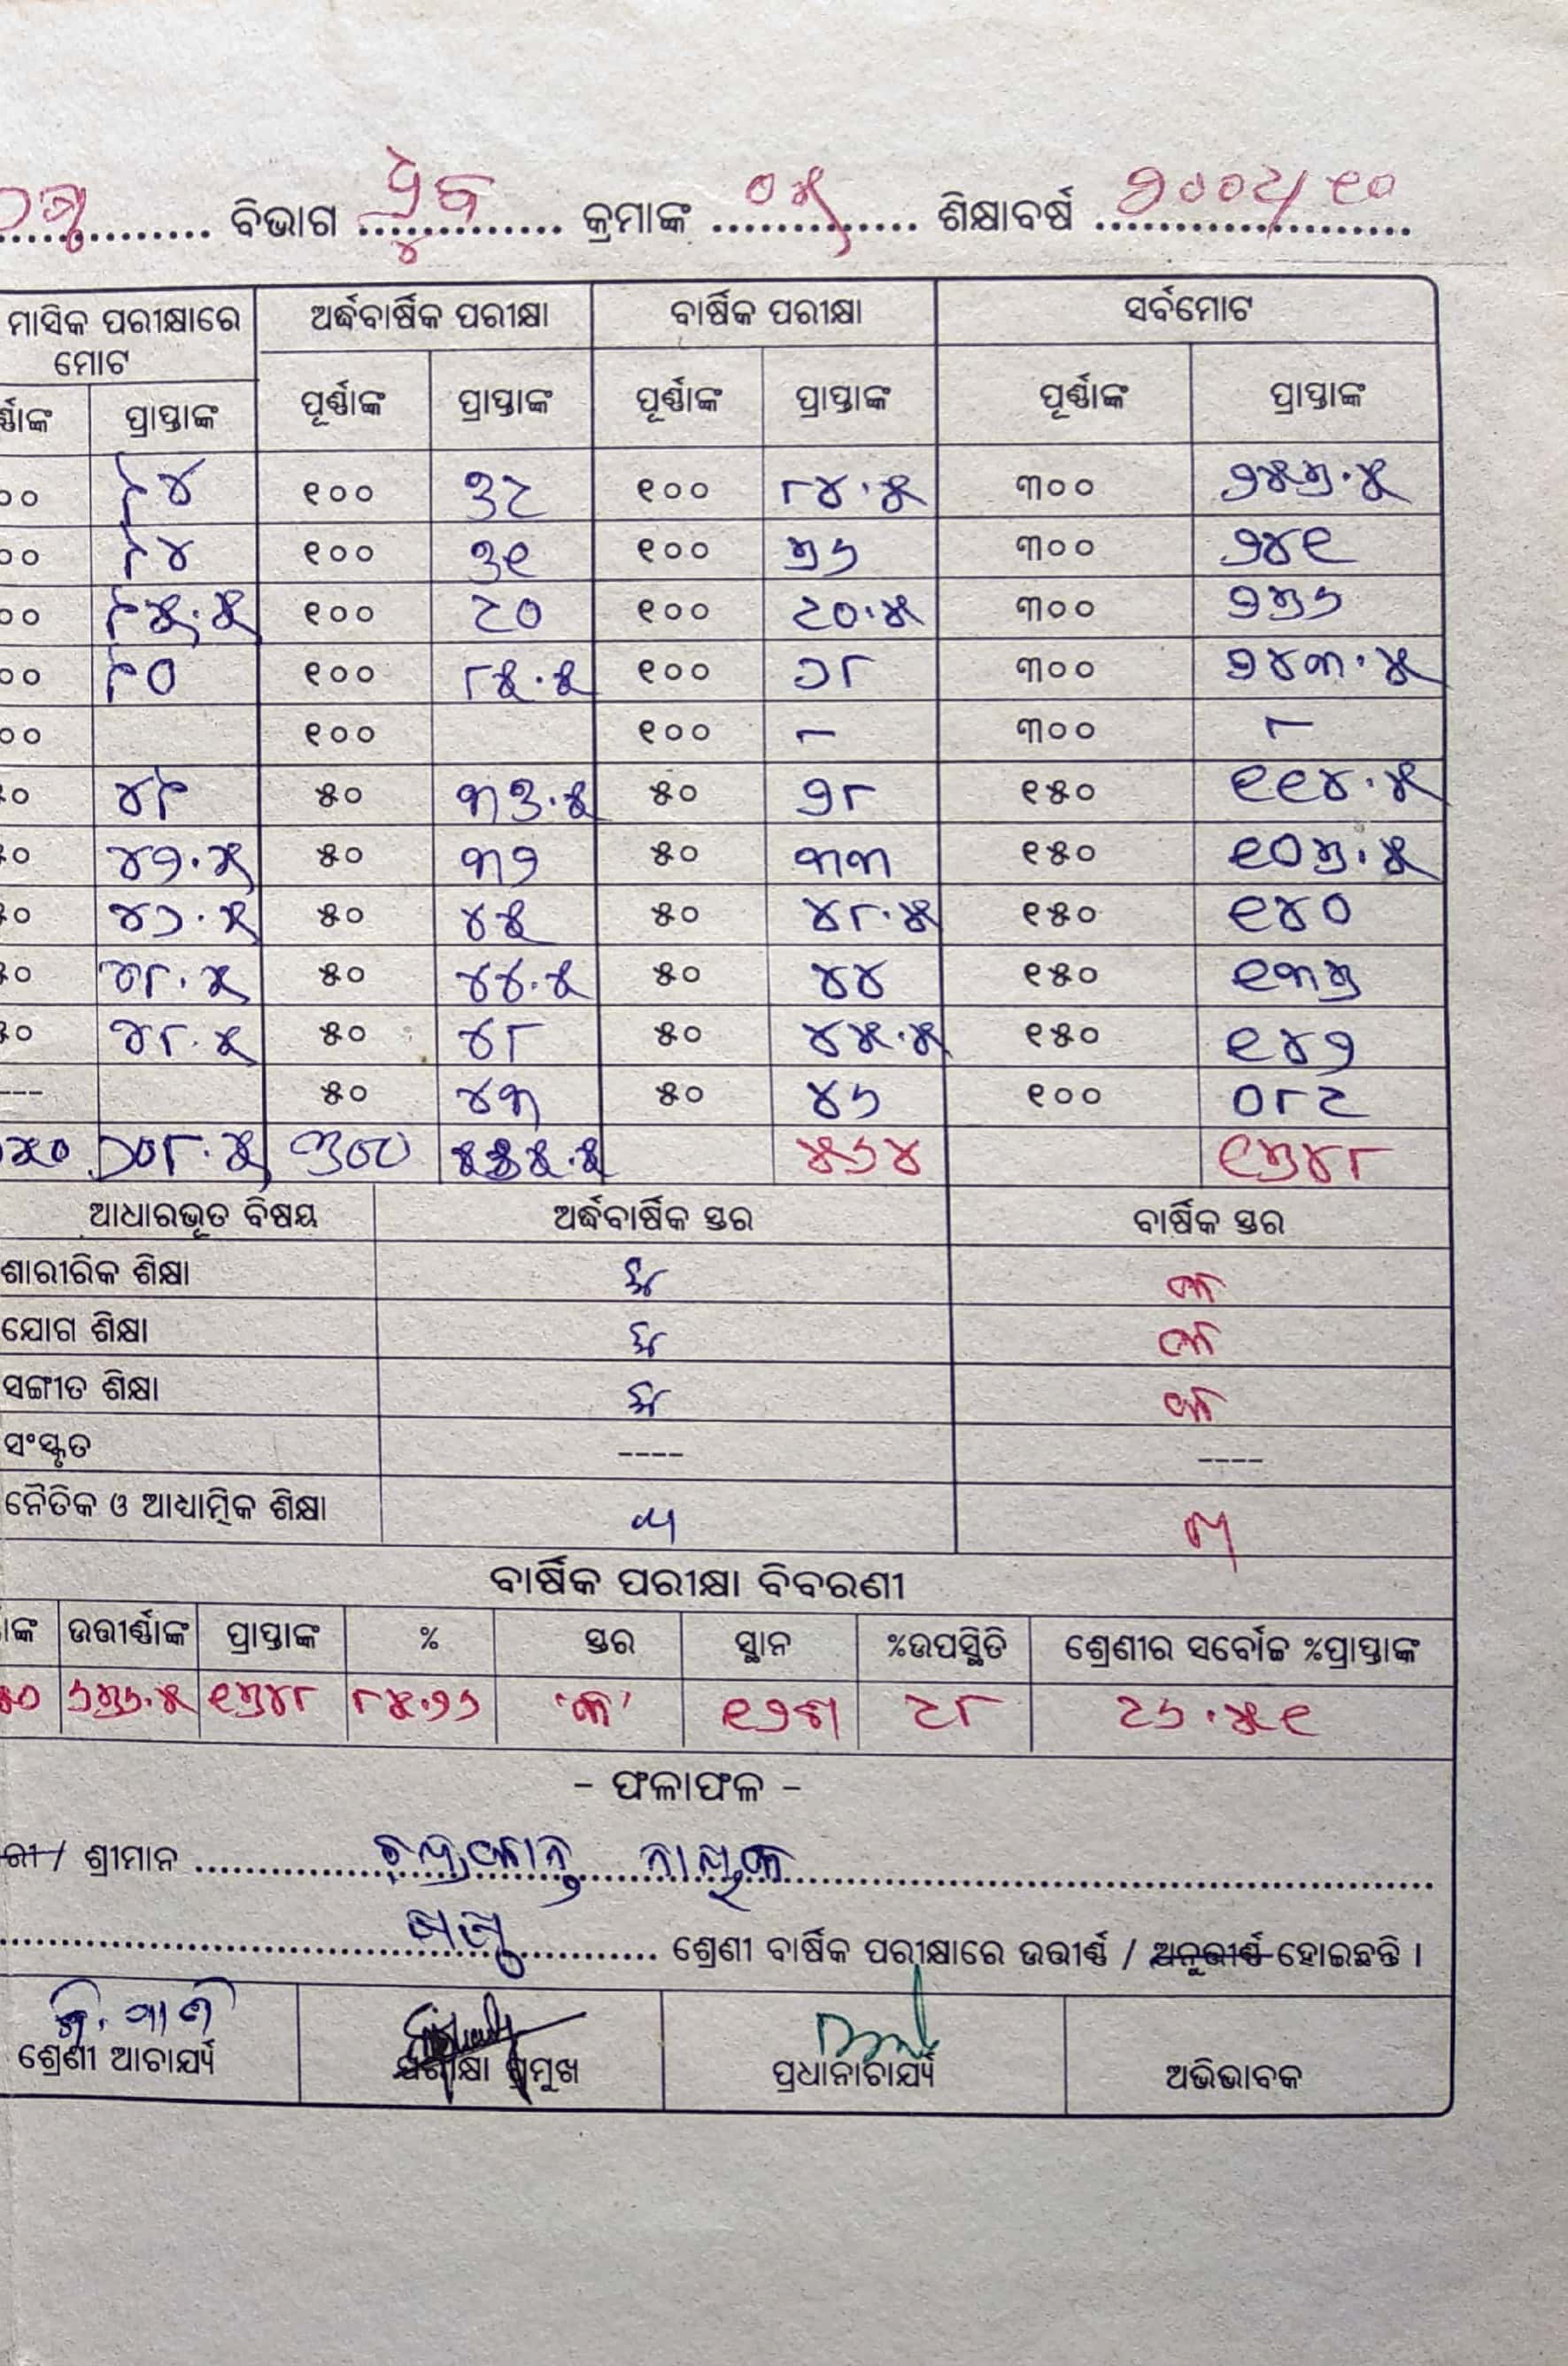 ବିଭାଗ ଧ୍ରୁବ କ୍ରମାଙ୍କ ୦୫ ଶିକ୍ଷାବର୍ଷ ୨୦୦୯/୧୦
ମାସିକ ପରୀକ୍ଷାରେ ମୋଟ ଅର୍ଦ୍ଧବାର୍ଷିକ ପରୀକ୍ଷା ବାର୍ଷିକ ପରୀକ୍ଷା ସର୍ବମୋଟ
ର୍ଣ୍ଣାଙ୍କ ପ୍ରାପ୍ତାଙ୍କ ପୂର୍ଣ୍ଣାଙ୍କ ପ୍ରାପ୍ତାଙ୍କ ପୂର୍ଣ୍ଣାଙ୍କ ପ୍ରାପ୍ତାଙ୍କ ପୂର୍ଣ୍ଣାଙ୍କ ପ୍ରାପ୍ତାଙ୍କ
୦୦ ୯୪ ୧୦୦ ୭୯ ୧୦୦ ୮୪.୫ ୩୦୦ ୨୫୭.୫
୦୦ ୯୪ ୧୦୦ ୭୧ ୧୦୦ ୭୬ ୩୦୦ ୨୪୧
୦୦ ୯୫.୫ ୧୦୦ ୯୦ ୧୦୦ ୯୦.୫ ୩୦୦ ୨୭୬
୦୦ ୯୦ ୧୦୦ ୮୫.୫ ୧୦୦ ୬୮ ୩୦୦ ୨୪୩.୫
୦୦ ୧୦୦ ୧୦୦ – ୩୦୦ –
୫୦ ୪୯ ୫୦ ୩୭.୫ ୫୦ ୨୮ ୧୫୦ ୧୧୪.୫
୫୦ ୪୨.୫ ୫୦ ୩୨ ୫୦ ୩୩ ୧୫୦ ୧୦୭.୫
୫୦ ୪୬.୫ ୫୦ ୪୫ ୫୦ ୪୮.୫ ୧୫୦ ୧୪୦
୫୦ ୪୮.୫ ୫୦ ୪୪.୫ ୫୦ ୪୪ ୧୫୦ ୧୩୭
୫୦ ୪୮.୫ ୫୦ ୪୮ ୫୦ ୪୫.୫ ୧୫୦ ୧୪୨
--- ୫୦ ୪୩ ୫୦ ୪୬ ୧୦୦ ୦୮୯
୫୦ ୬୦୮.୫ ୭୦୦ ୫୭୫.୫ ୫୬୪ ୧୭୪୮
ଆଧାରଭୂତ ବିଷୟ ଅର୍ଦ୍ଧବାର୍ଷିକ ସ୍ତର ବାର୍ଷିକ ସ୍ତର
ଶାରୀରିକ ଶିକ୍ଷା କ
ଯୋଗ ଶିକ୍ଷା କ
ସଙ୍ଗୀତ ଶିକ୍ଷା କ
ସଂସ୍କୃତ ---- ----
ନୈତିକ ଓ ଆଧ୍ୟାତ୍ମିକ ଶିକ୍ଷା
ବାର୍ଷିକ ପରୀକ୍ଷା ବିବରଣୀ
ାଙ୍କ ଉତ୍ତୀର୍ଣ୍ଣାଙ୍କ ପ୍ରାପ୍ତାଙ୍କ % ସ୍ତର ସ୍ଥାନ %ଉପସ୍ଥିତି ଶ୍ରେଣୀର ସର୍ବୋଚ୍ଚ %ପ୍ରାପ୍ତାଙ୍କ
୫୦ ୬୭୬.୫ ୧୭୪୮ ୮୫.୨୬ 'କ' ୧୨ଶ ୯୮ ୯୬.୫୧
- ଫଳାଫଳ -
ରୀ / ଶ୍ରୀମାନ ଚନ୍ଦ୍ରକାନ୍ତ ନାୟକ
ଶ୍ରେଣୀ ବାର୍ଷିକ ପରୀକ୍ଷାରେ ଉତ୍ତୀର୍ଣ୍ଣ / ଅନୁତ୍ତୀର୍ଣ୍ଣ ହୋଇଛନ୍ତି ।
ଶ୍ରେଣୀ ଆଚାର୍ଯ୍ୟ ପରୀକ୍ଷା ପ୍ରମୁଖ ପ୍ରଧାନାଚାର୍ଯ୍ୟ ଅଭିଭାବକ